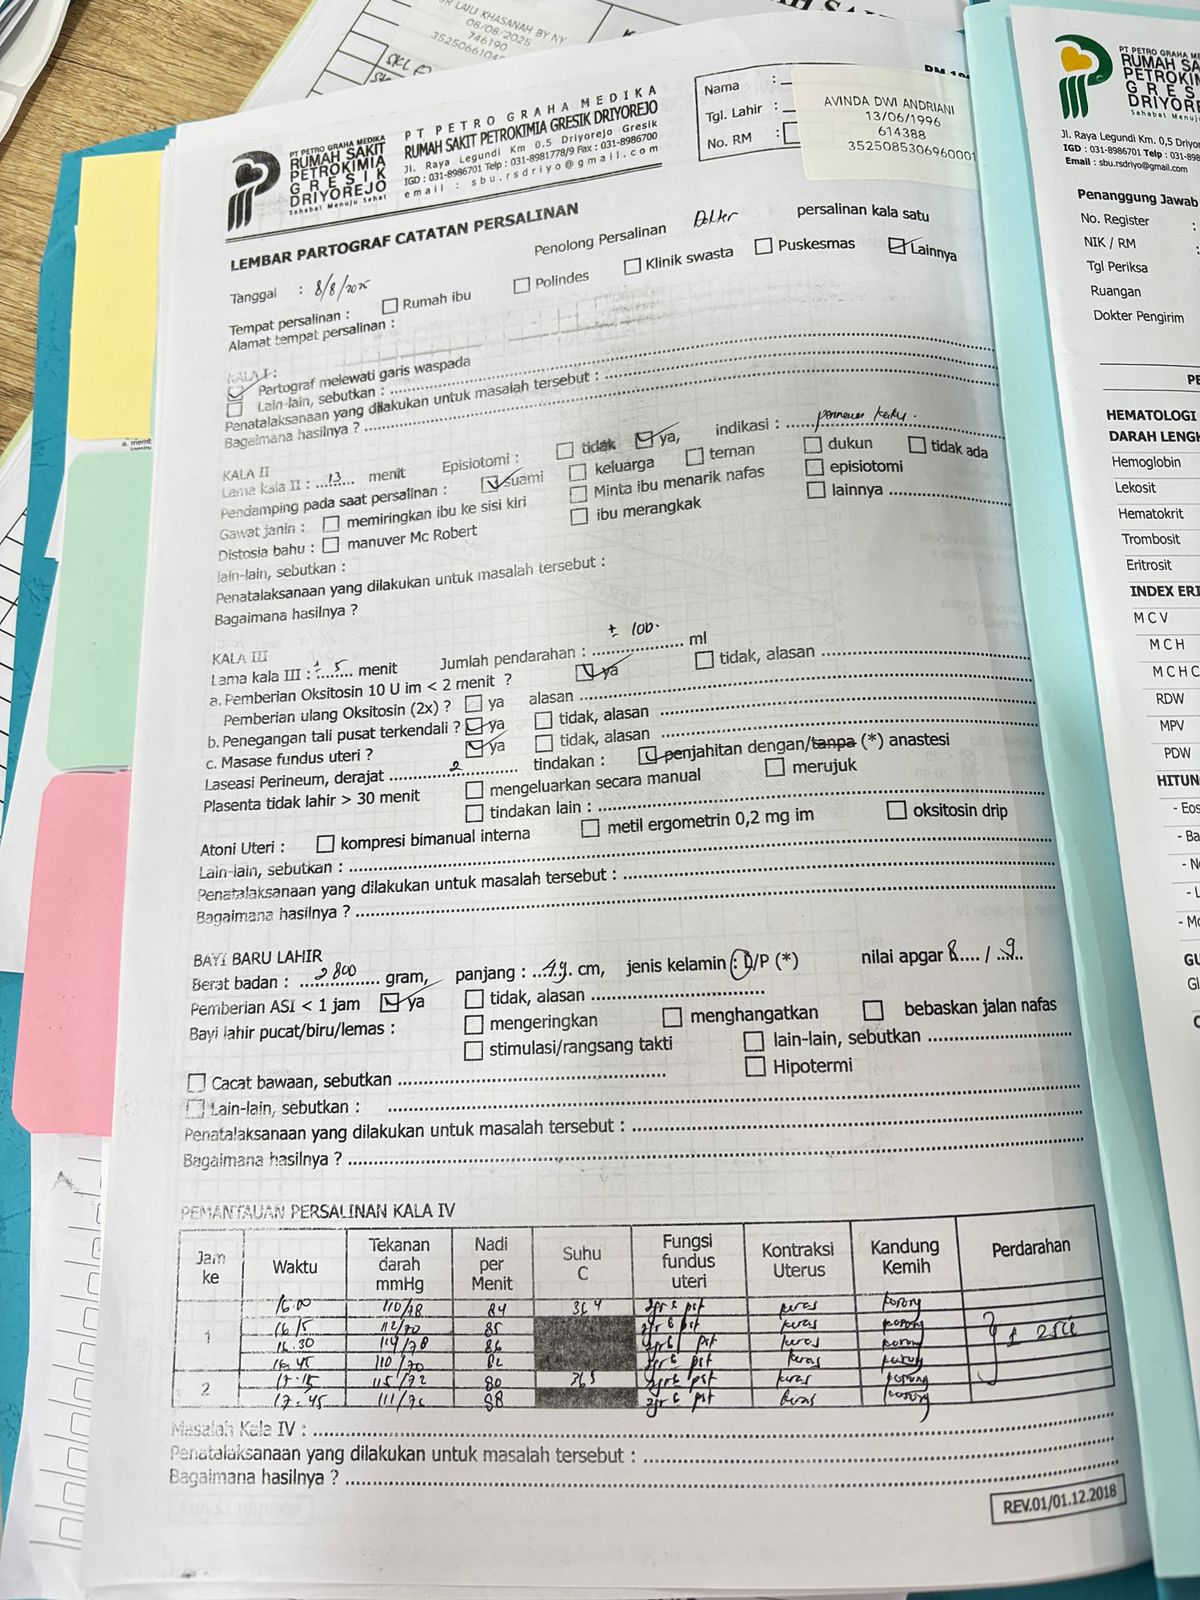 OR LAILI KHASANAH BY NY
08/08/2025
746190
PT PETRO GRAHA MEDIKA
RUMAH SAKIT
PETROKIMIA
GRESIK
DRIYOREJO
Sahabat Menuju Sehat
PT PETRO GRAHA MEDIKA
RUMAH SAKIT PETROKIMIA GRESIK DRIYOREJO
Jl. Raya Legundi Km 0.5 Driyorejo Gresik
IGD : 031-8986701 Telp : 031-8981778/9 Fax : 031-8986700
email : sbu.rsdriyo@gmail.com
Nama :
Tgl. Lahir :
No. RM :
AVINDA DWI ANDRIANI
13/06/1996
614388
3525085306960001
LEMBAR PARTOGRAF CATATAN PERSALINAN
Tanggal : 8/8/2025 Penolong Persalinan Dokter persalinan kala satu
Tempat persalinan : Rumah ibu Polindes Klinik swasta Puskesmas Lainnya
Alamat tempat persalinan :
KALA I :
Pertograf melewati garis waspada
Lain-lain, sebutkan :
Penatalaksanaan yang dilakukan untuk masalah tersebut :
Bagaimana hasilnya ?
KALA II
Lama kala II : 13 menit Episiotomi : tidak ya, indikasi : perineum kaku.
Pendamping pada saat persalinan : suami keluarga teman dukun tidak ada
Gawat janin : memiringkan ibu ke sisi kiri Minta ibu menarik nafas episiotomi
Distosia bahu : manuver Mc Robert ibu merangkak lainnya
lain-lain, sebutkan :
Penatalaksanaan yang dilakukan untuk masalah tersebut :
Bagaimana hasilnya ?
KALA III
Lama kala III : ± 5 menit Jumlah pendarahan : ± 100. ml
a. Pemberian Oksitosin 10 U im < 2 menit ? ya tidak, alasan
Pemberian ulang Oksitosin (2x) ? ya alasan
b. Penegangan tali pusat terkendali ? ya tidak, alasan
c. Masase fundus uteri ? ya tidak, alasan
Laseasi Perineum, derajat 2 tindakan : penjahitan dengan/tanpa (*) anastesi
Plasenta tidak lahir > 30 menit mengeluarkan secara manual merujuk
tindakan lain :
Atoni Uteri : kompresi bimanual interna metil ergometrin 0,2 mg im oksitosin drip
Lain-lain, sebutkan :
Penatalaksanaan yang dilakukan untuk masalah tersebut :
Bagaimana hasilnya ?
BAYI BARU LAHIR
Berat badan : 2800 gram, panjang : 49 cm, jenis kelamin : L/P (*) nilai apgar 8 / 9
Pemberian ASI < 1 jam ya tidak, alasan
Bayi lahir pucat/biru/lemas : mengeringkan menghangatkan bebaskan jalan nafas
stimulasi/rangsang takti lain-lain, sebutkan
Cacat bawaan, sebutkan Hipotermi
Lain-lain, sebutkan :
Penatalaksanaan yang dilakukan untuk masalah tersebut :
Bagaimana hasilnya ?
PEMANTAUAN PERSALINAN KALA IV
Jam ke Waktu Tekanan darah mmHg Nadi per Menit Suhu C Fungsi fundus uteri Kontraksi Uterus Kandung Kemih Perdarahan
1 16.00 110/78 84 364 2jr b pst keras kosong
16.15 112/70 85 2jr b pst keras kosong
16.30 114/78 86 2jr b pst keras kosong
16.45 110/70 82 2jr b pst keras kosong
2 17.15 115/72 80 365 2jr b pst keras kosong
17.45 111/76 88 2jr b pst keras kosong
Masalah Kala IV :
Penatalaksanaan yang dilakukan untuk masalah tersebut :
Bagaimana hasilnya ?
REV.01/01.12.2018
PT PETRO GRAHA
RUMAH
PETROKIMIA
GRES
DRIYOR
Jl. Raya Legundi Km. 0,5
IGD : 031-8986701 Telp :
Email : sbu.rsdriyo@gmail.com
Penanggung Jawab
No. Register :
NIK / RM :
Tgl Periksa
Ruangan
Dokter Pengirim
HEMATOLOGI
DARAH
Hemoglobin
Lekosit
Hematokrit
Trombosit
Eritrosit
INDEX
MCV
MCH
MCHC
RDW
MPV
PDW